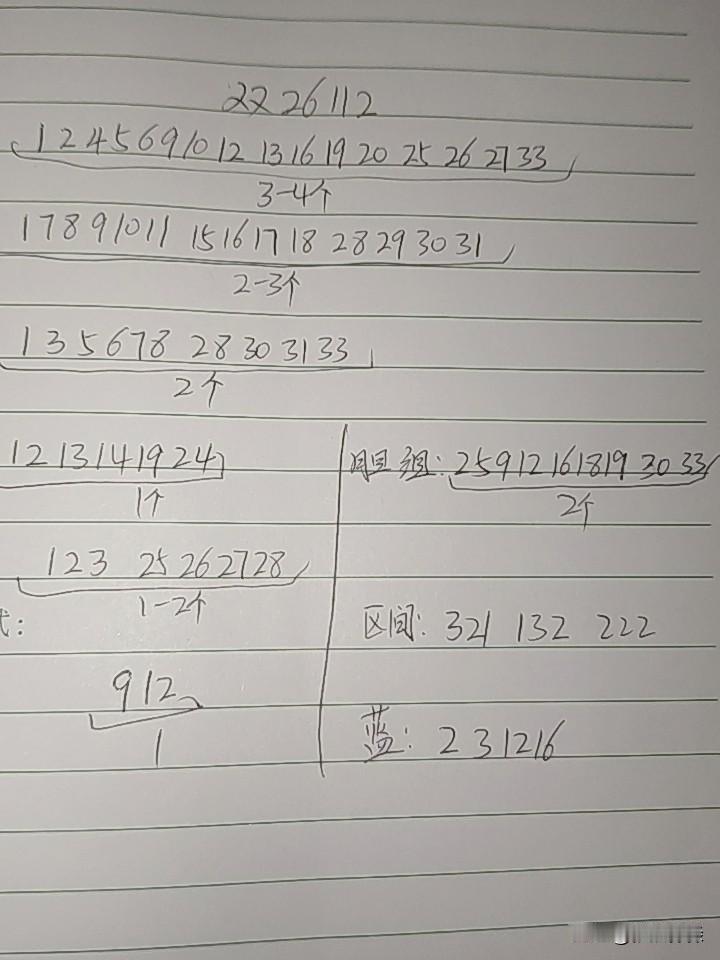 22 26 112
1 2 4 5 6 9 10 12 13 16 19 20 25 26 27 33
3-4个
1 7 8 9 10 11 15 16 17 18 28 29 30 31
2-3个
1 3 5 6 7 8 28 30 31 33
2个
12 13 14 19 24
1个
胆组: 2 5 9 12 16 18 19 30 33
2个
1 2 3 25 26 27 28
1-2个
区间: 321 132 222
9 12
1
蓝: 2 3 12 16